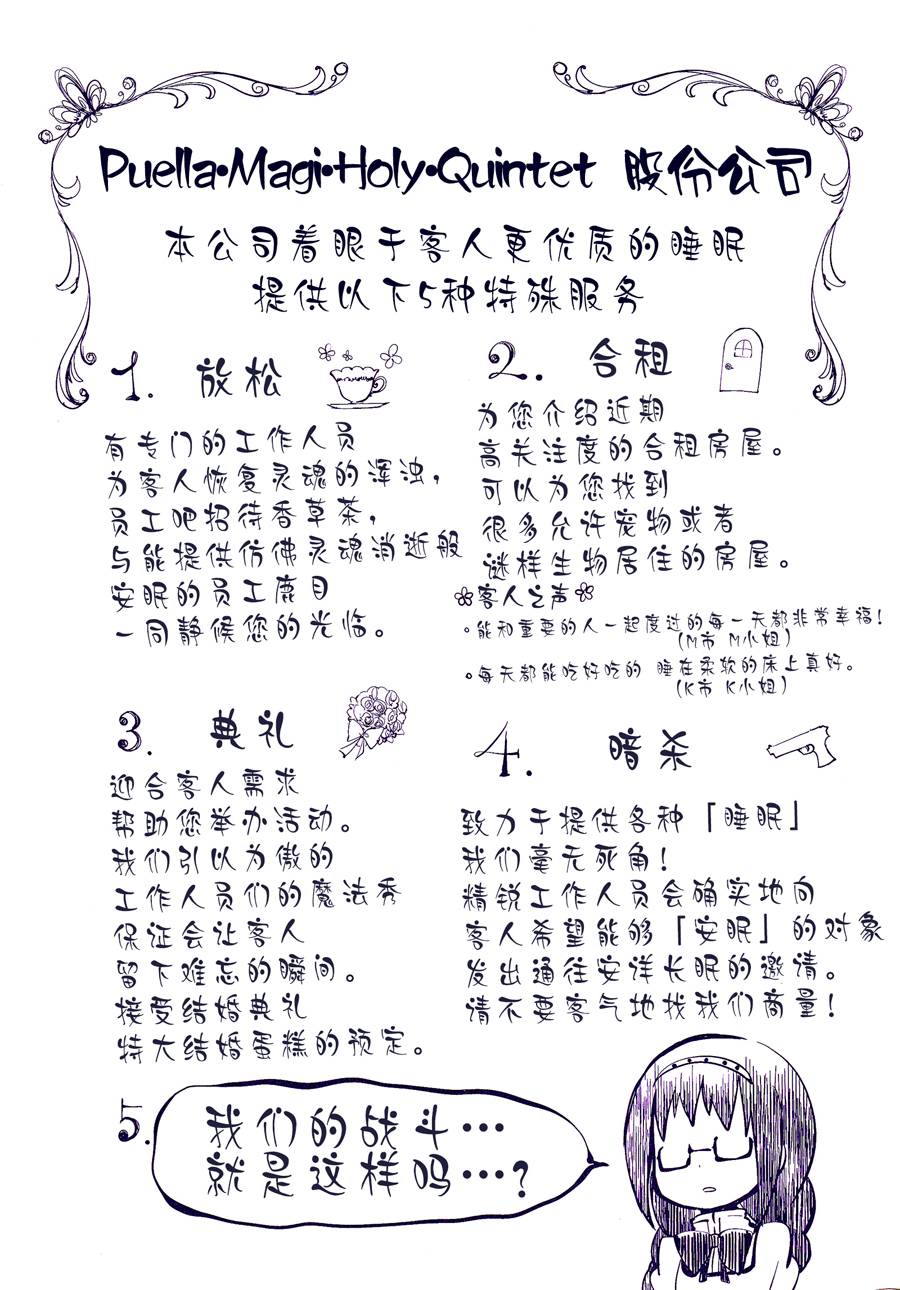 Puella•Magi•Holy•Quintet 股份公司
本公司着眼于客人更优质的睡眠
提供以下5种特殊服务
1. 放松
有专门的工作人员
为客人恢复灵魂的浑浊,
员工吧招待香草茶,
与能提供仿佛灵魂消逝般
安眠的员工鹿目
一同静候您的光临。
2. 合租
为您介绍近期
高关注度的合租房屋。
可以为您找到
很多允许宠物或者
谜样生物居住的房屋。
客人之声
。能和重要的人一起度过的每一天都非常幸福!
(M市 M小姐)
。每天都能吃好吃的 睡在柔软的床上真好。
(K市 K小姐)
3. 典礼
迎合客人需求
帮助您举办活动。
我们引以为傲的
工作人员们的魔法秀
保证会让客人
留下难忘的瞬间。
接受结婚典礼
特大结婚蛋糕的预定。
4. 暗杀
致力于提供各种「睡眠」
我们毫无死角!
精锐工作人员会确实地向
客人希望能够「安眠」的对象
发出通往安详长眠的邀请。
请不要客气地找我们商量!
5.
我们的战斗…
就是这样吗…?